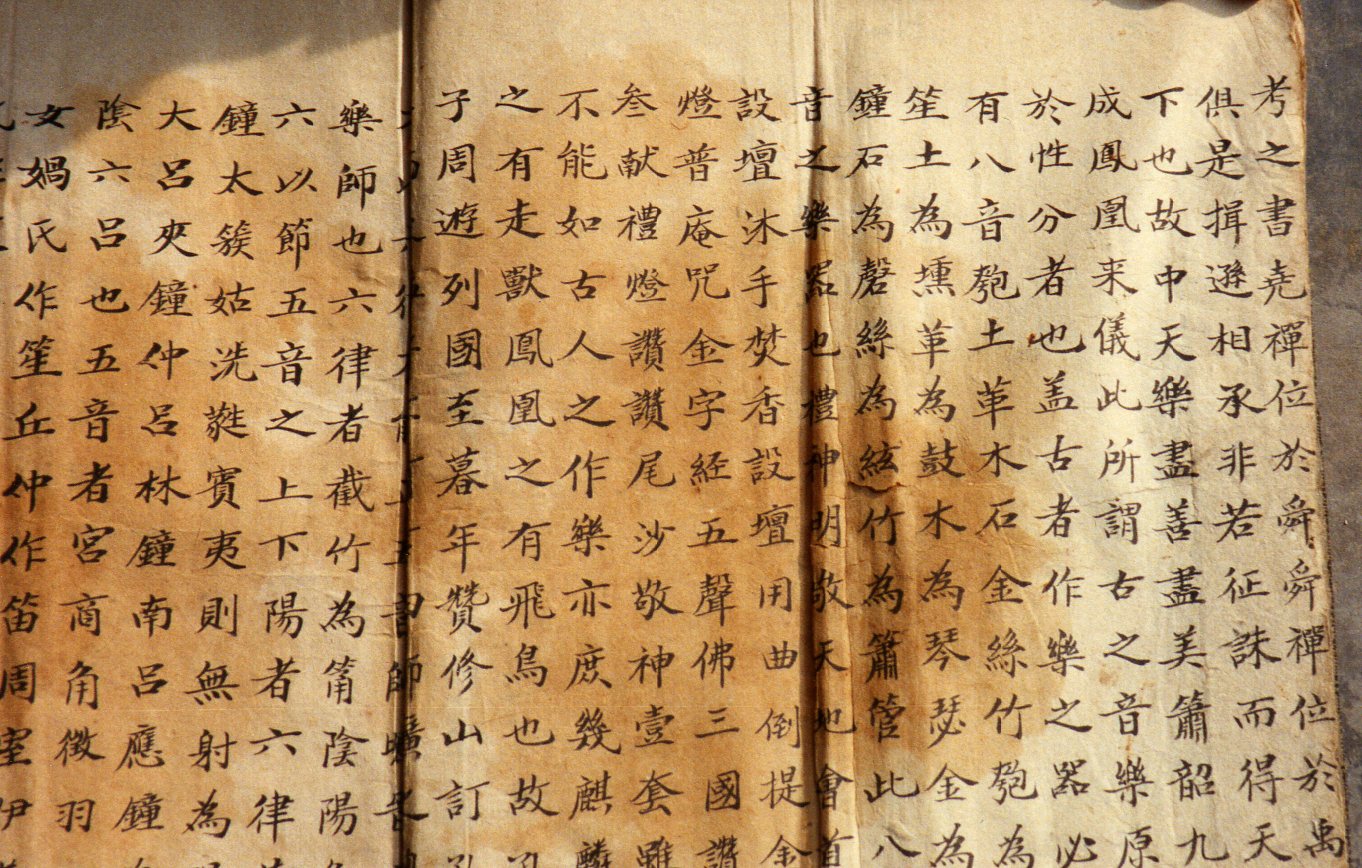 考之書堯禪位於舜舜禪位於禹
俱是揖遜相承非若征誅而得天
下也故中天樂盡善盡美簫韶九
成鳳凰来儀此所謂古之音樂原
於性分者也盖古者作樂之器必
有八音匏土革木石金絲竹匏為
笙土為壎革為鼓木為琴瑟金為
鐘石為磬絲為絃竹為簫管此八
音之樂器也禮神明敬天地會首
設壇沐手焚香設壇用曲倒提金
燈普庵咒金字経五聲佛三國讚
叁献禮燈讚讚尾沙敬神壹套雖
不能如古人之作樂亦庶幾麒麟
之有走獸鳳凰之有飛鳥也故孔
子周遊列國至暮年贊修山訂
師曠
樂師也六律者截竹為筩陰陽
六以節五音之上下陽者六律
鐘太簇姑洗蕤賓夷則無射為
大呂夾鐘仲呂林鐘南呂應鐘
陰六呂也五音者宮商角徵羽
女媧氏作笙丘仲作笛周室伊